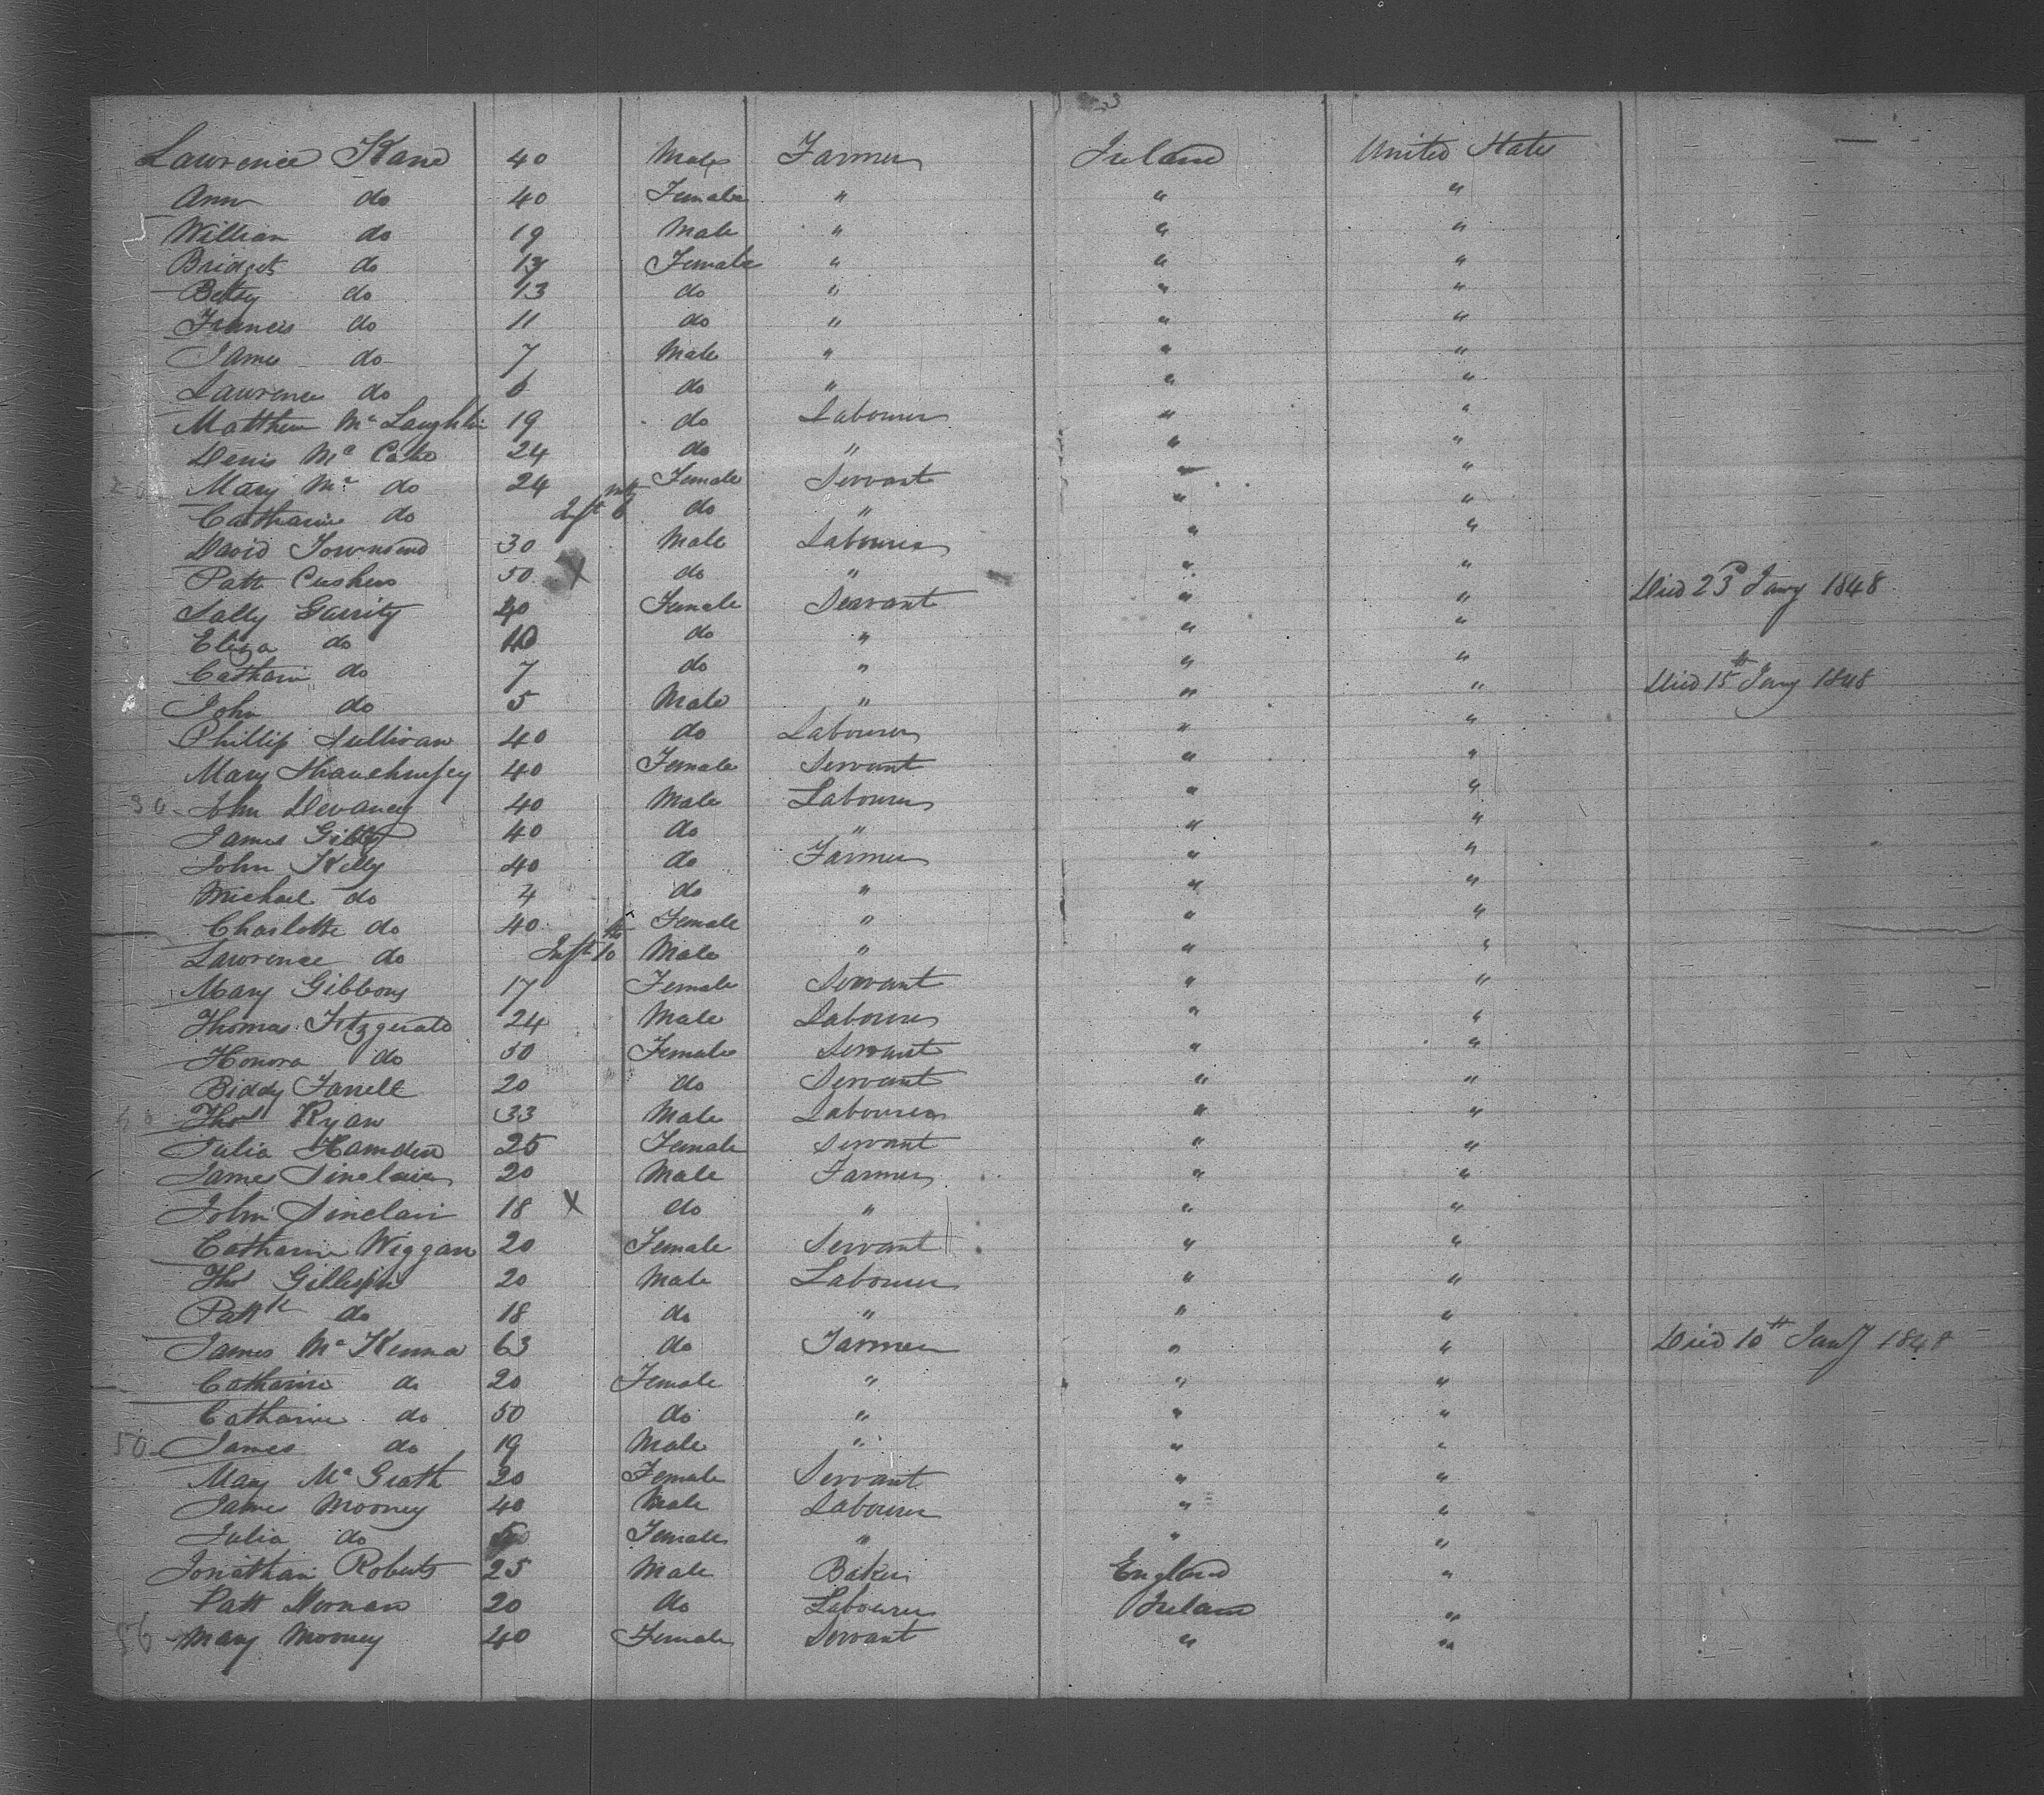 Lawrence Kane 40 Male Farmer Ireland United States
Ann do 40 Female " " "
William do 19 Male " " "
Bridget do Female " " "
Betsy do 13 do " " "
Francis do 11 do " " "
James do 7 Male " " "
Lawrence do 6 do " " "
Matthew Mc Laughlin 19 do Labourer " "
Denis Mc Cabe 24 do " " "
Mary Mc do 24 Female Servant " "
Catharine do Inft 6 mths do " " "
David Townsend 30 Male Labourer " "
Patt 50 X do " " " Died 23d Jany 1848
Sally Garrity 40 Female Servant " "
Eliza do 10 do " " "
Catharin do 7 do " " " Died 15th Jany 1848
John do 5 Male " " "
Phillip Sullivan 40 do Labourer " "
Mary 40 Female Servant " "
30 John Devaney 40 Male Labourer " "
James 40 do " " "
John Kelly 40 do Farmer " "
Michael do 4 do " " "
Charlotte do 40 Female " " "
Lawrence do Inft 10 Male " " "
Mary Gibbons 17 Female Servant " "
Thomas Fitzgerald 24 Male Labourer " "
Honora do 50 Female Servant " "
Biddy Farrell 20 do Servant " "
Thos Ryan 33 Male Labourer " "
Julia Hamden 25 Female Servant " "
James Sinclair 20 Male Farmer " "
John Sinclair 18 X do " " "
Catharin Wiggan 20 Female Servant " "
Thos Gillespie 20 Male Labourer " "
Pattk do 18 do " " "
James Mc Kenna 63 do Farmer " " Died 10th Jany 1848
Catharine do 20 Female " " "
Catharine do 50 do " " "
50 James do 19 Male " " "
Mary Mc Grath 20 Female Servant " "
James Mooney 40 Male Labourer " "
Julia do Female " " "
Jonathan Roberts 25 Male Baker England "
Patt 20 do Labourer Ireland "
56 Mary Mooney 40 Female Servant " "